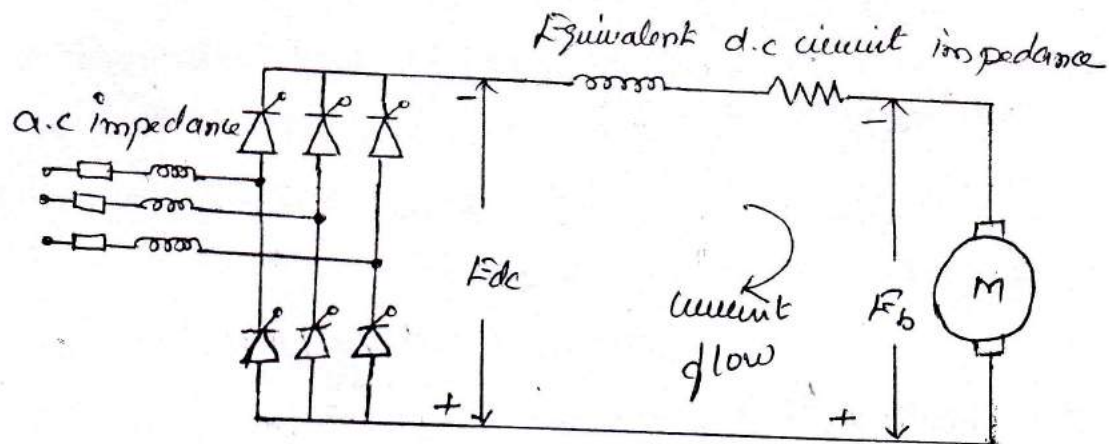 Equivalent d.c circuit impedance
a.c impedance
-
-
Edc
current
flow
Eb
M
+
+